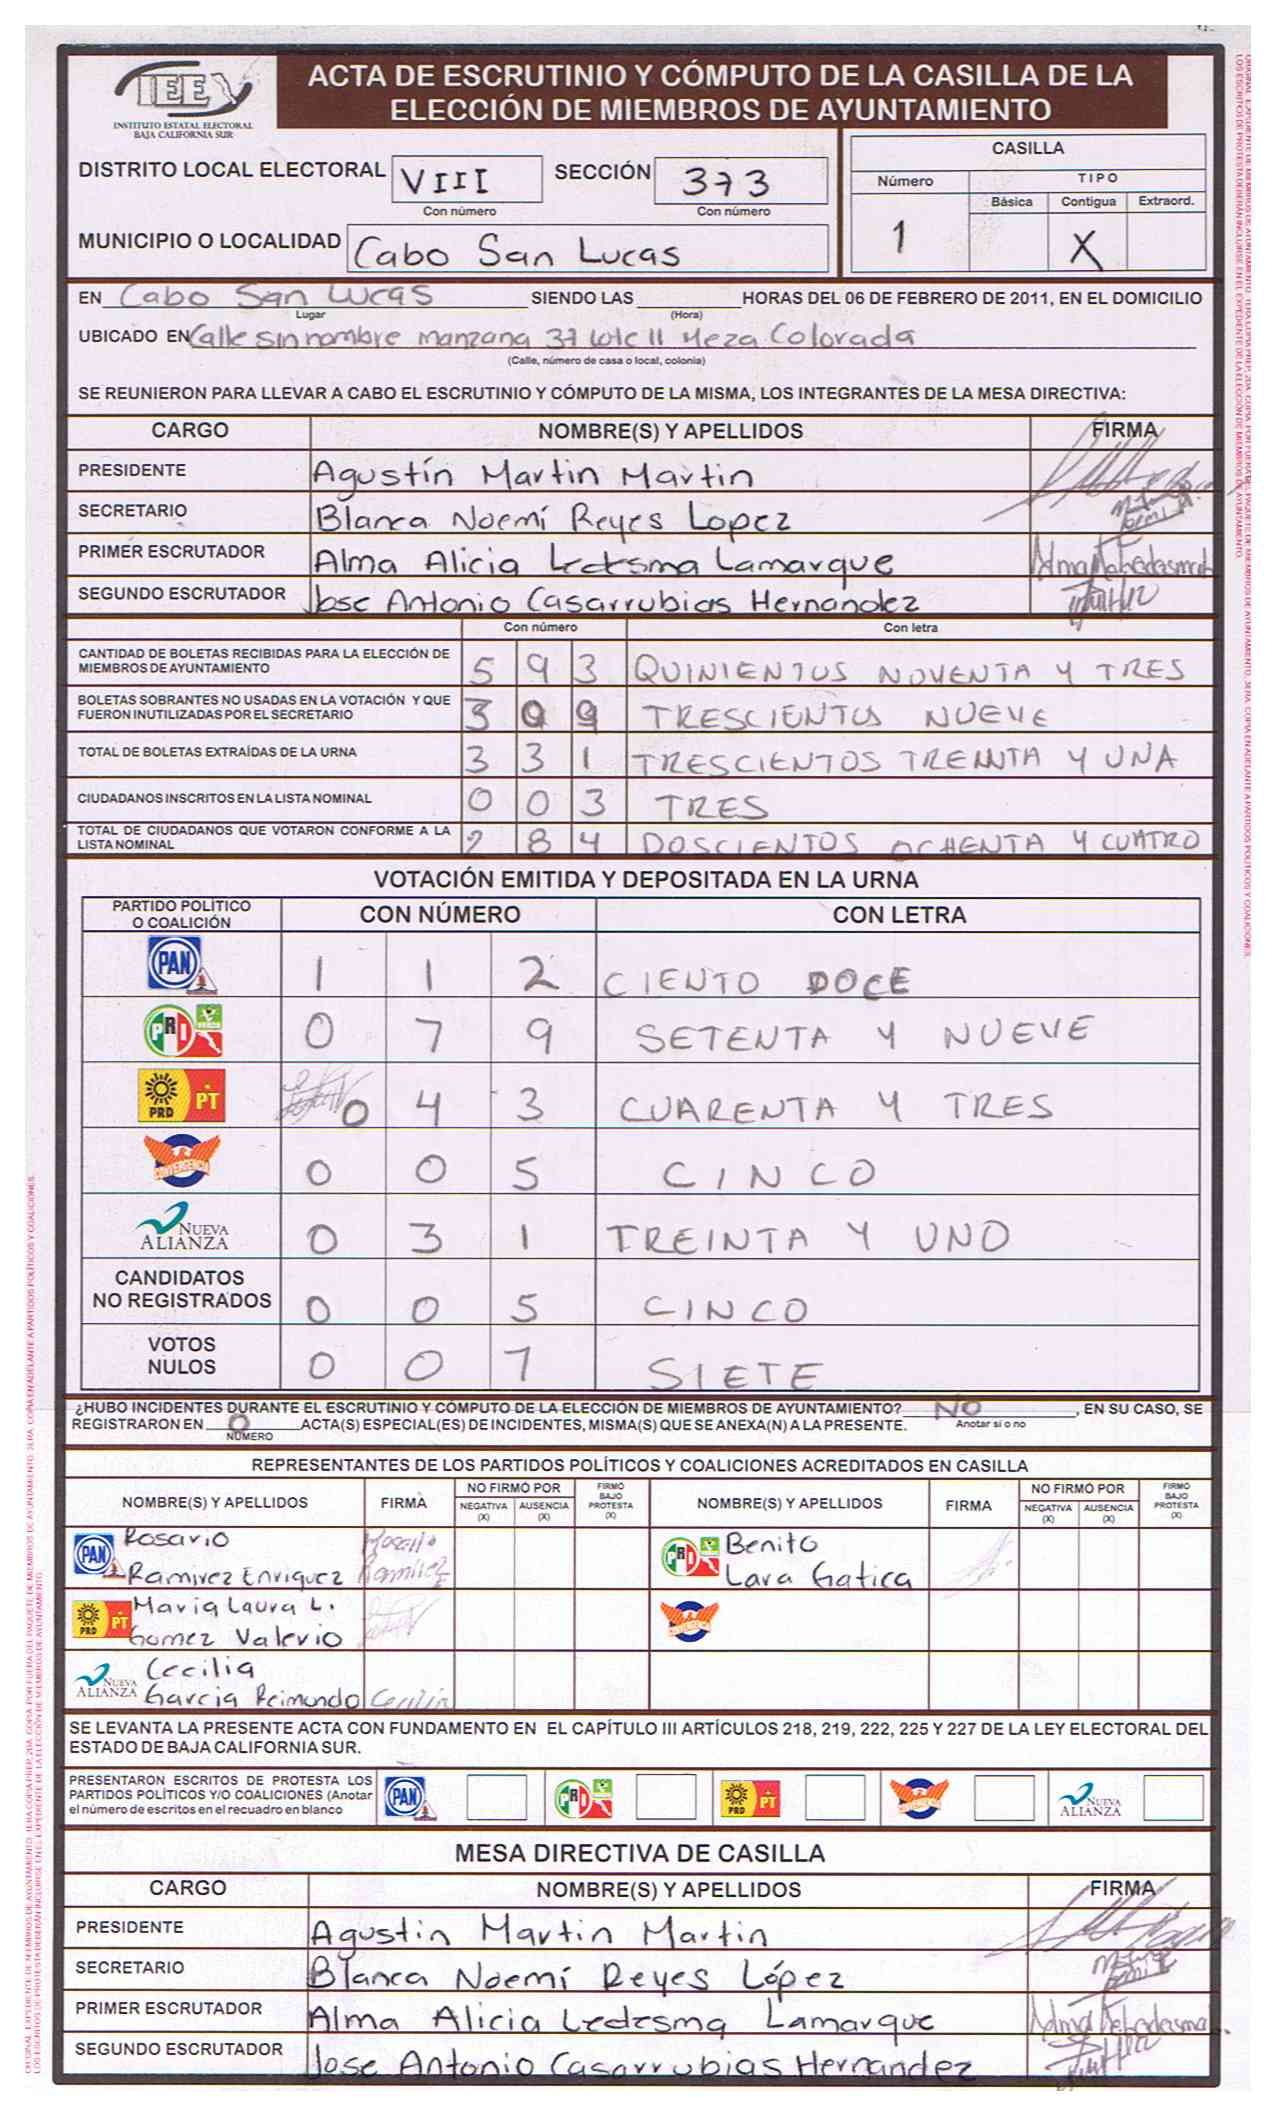 IEE
INSTITUTO ESTATAL ELECTORAL
BAJA CALIFORNIA SUR
ACTA DE ESCRUTINIO Y CÓMPUTO DE LA CASILLA DE LA
ELECCIÓN DE MIEMBROS DE AYUNTAMIENTO
DISTRITO LOCAL ELECTORAL VIII SECCIÓN 373
Con número Con número
MUNICIPIO O LOCALIDAD Cabo San Lucas
CASILLA
Número TIPO
Básica Contigua Extraord.
1 X
EN Cabo San Lucas SIENDO LAS HORAS DEL 06 DE FEBRERO DE 2011, EN EL DOMICILIO
Lugar (Hora)
UBICADO EN Calle sin nombre manzana 37 lote 11 Meza Colorada
(Calle, número de casa o local, colonia)
SE REUNIERON PARA LLEVAR A CABO EL ESCRUTINIO Y CÓMPUTO DE LA MISMA, LOS INTEGRANTES DE LA MESA DIRECTIVA:
CARGO NOMBRE(S) Y APELLIDOS FIRMA
PRESIDENTE Agustín Martin Martin
SECRETARIO Blanca Noemí Reyes Lopez
PRIMER ESCRUTADOR Alma Alicia Ledesma Lamarque
SEGUNDO ESCRUTADOR Jose Antonio Casarrubias Hernandez
Con número Con letra
CANTIDAD DE BOLETAS RECIBIDAS PARA LA ELECCIÓN DE
MIEMBROS DE AYUNTAMIENTO 5 9 3 QUINIENTOS NOVENTA Y TRES
BOLETAS SOBRANTES NO USADAS EN LA VOTACIÓN Y QUE
FUERON INUTILIZADAS POR EL SECRETARIO 3 0 9 TRESCIENTOS NUEVE
TOTAL DE BOLETAS EXTRAÍDAS DE LA URNA 3 3 1 TRESCIENTOS TREINTA Y UNA
CIUDADANOS INSCRITOS EN LA LISTA NOMINAL 0 0 3 TRES
TOTAL DE CIUDADANOS QUE VOTARON CONFORME A LA
LISTA NOMINAL 2 8 4 DOSCIENTOS OCHENTA Y CUATRO
VOTACIÓN EMITIDA Y DEPOSITADA EN LA URNA
PARTIDO POLÍTICO
O COALICIÓN CON NÚMERO CON LETRA
PAN 1 1 2 CIENTO DOCE
PRI 0 7 9 SETENTA Y NUEVE
PRD PT 0 4 3 CUARENTA Y TRES
CONVERGENCIA 0 0 5 CINCO
NUEVA
ALIANZA 0 3 1 TREINTA Y UNO
CANDIDATOS
NO REGISTRADOS 0 0 5 CINCO
VOTOS
NULOS 0 0 7 SIETE
¿HUBO INCIDENTES DURANTE EL ESCRUTINIO Y CÓMPUTO DE LA ELECCIÓN DE MIEMBROS DE AYUNTAMIENTO? NO , EN SU CASO, SE
Anotar si o no
REGISTRARON EN 0 ACTA(S) ESPECIAL(ES) DE INCIDENTES, MISMA(S) QUE SE ANEXA(N) A LA PRESENTE.
NÚMERO
REPRESENTANTES DE LOS PARTIDOS POLÍTICOS Y COALICIONES ACREDITADOS EN CASILLA
NOMBRE(S) Y APELLIDOS FIRMA NO FIRMÓ POR NEGATIVA (X) AUSENCIA (X) FIRMÓ BAJO PROTESTA (X) NOMBRE(S) Y APELLIDOS FIRMA NO FIRMÓ POR NEGATIVA (X) AUSENCIA (X) FIRMÓ BAJO PROTESTA (X)
PAN Rosario
Ramirez Enriquez Rosario Ramirez
PRI Benito
Lara Gatica
PRD PT Maria Laura L.
Gomez Valerio
CONVERGENCIA
NUEVA
ALIANZA Cecilia
Garcia Reimundo Cecilia
SE LEVANTA LA PRESENTE ACTA CON FUNDAMENTO EN EL CAPÍTULO III ARTÍCULOS 218, 219, 222, 225 Y 227 DE LA LEY ELECTORAL DEL
ESTADO DE BAJA CALIFORNIA SUR.
PRESENTARON ESCRITOS DE PROTESTA LOS
PARTIDOS POLÍTICOS Y/O COALICIONES (Anotar
el número de escritos en el recuadro en blanco
PAN PRI PRD PT CONVERGENCIA NUEVA ALIANZA
MESA DIRECTIVA DE CASILLA
CARGO NOMBRE(S) Y APELLIDOS FIRMA
PRESIDENTE Agustin Martin Martin
SECRETARIO Blanca Noemí Reyes López
PRIMER ESCRUTADOR Alma Alicia Ledesma Lamarque
SEGUNDO ESCRUTADOR Jose Antonio Casarrubias Hernandez